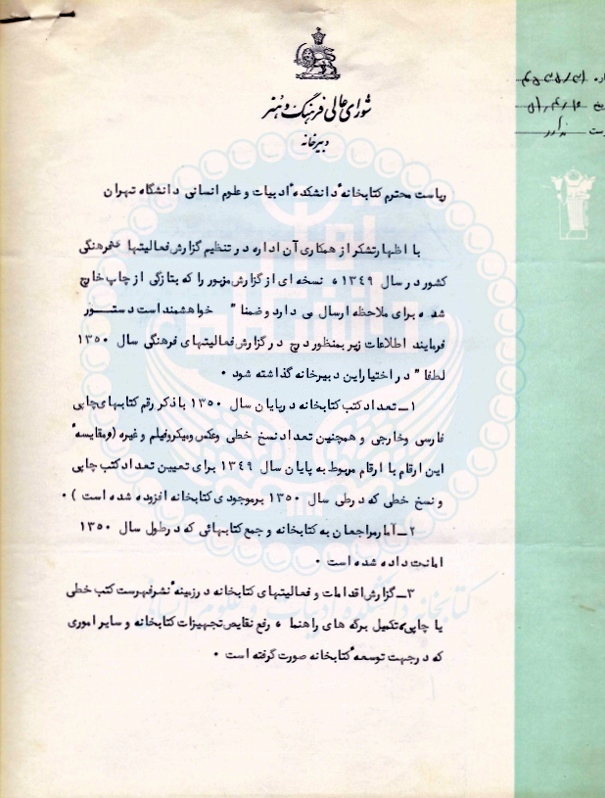 شورای عالی فرهنگ و هنر
دبیرخانه
ریاست محترم کتابخانهٔ دانشکدهٔ ادبیات و علوم انسانی دانشگاه تهران
با اظهار تشکر از همکاری آن اداره در تنظیم گزارش فعالیتهای فرهنگی
کشور در سال ۱۳۴۹ ، نسخه ای از گزارش مزبور را که بتازگی از چاپ خارج
شده برای ملاحظه ارسال می دارد و ضمنا" خواهشمند است دستور
فرمایند اطلاعات زیر بمنظور درج در گزارش فعالیتهای فرهنگی سال ۱۳۵۰
لطفا" در اختیار این دبیرخانه گذاشته شود .
۱ــ تعداد کتب کتابخانه در پایان سال ۱۳۵۰ با ذکر رقم کتابهای چاپی
فارسی و خارجی و همچنین تعداد نسخ خطی و عکس و میکروفیلم و غیره (و مقایسهٔ
این ارقام با ارقام مربوط به پایان سال ۱۳۴۹ برای تعیین تعداد کتب چاپی
و نسخ خطی که در طی سال ۱۳۵۰ بر موجودی کتابخانه افزوده شده است ) .
۲ــ آمار مراجعان به کتابخانه و جمع کتابهائی که در طول سال ۱۳۵۰
امانت داده شده است .
۳ــ گزارش اقدامات و فعالیتهای کتابخانه در زمینهٔ نشر فهرست کتب خطی
یا چاپی، تکمیل برگه های راهنما ، رفع نقایص تجهیزات کتابخانه و سایر اموری
که در جهت توسعهٔ کتابخانه صورت گرفته است .
کتابخانه دانشکده ادبیات و علوم انسانی